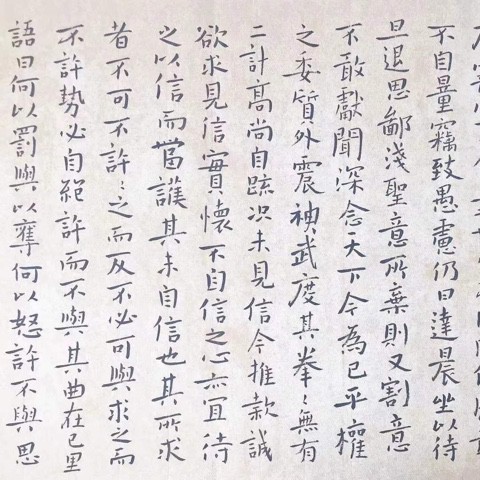 不自量竊致愚慮仍日達晨坐以待
旦退思鄙淺聖意所棄則又割意
不敢獻聞深念天下今為已平權
之委質外震神武度其拳〻無有
二計高尚自疏況未見信今推款誠
欲求見信實懷不自信之心亦宜待
之以信而當護其未自信也其所求
者不可不許〻之而反不必可與求之而
不許勢必自絕許而不與其曲在己里
語曰何以罰與以奪何以怒許不與思